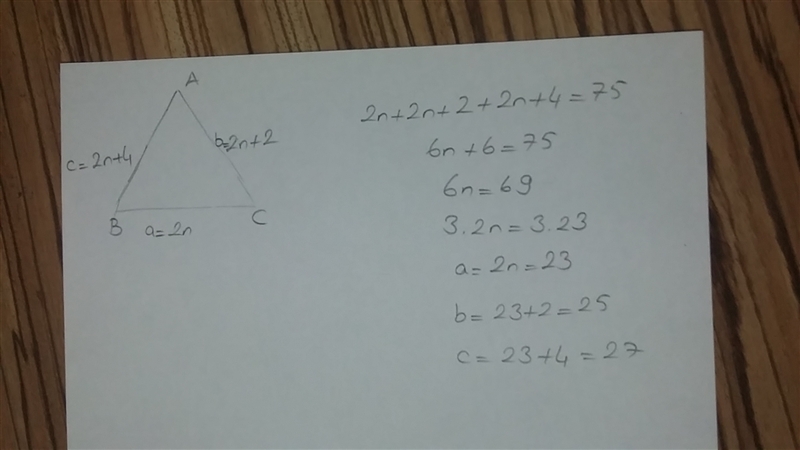 A
c=2n+4
b=2n+2
B
C
a=2n
2n+2n+2+2n+4=75
6n+6=75
6n=69
3.2n=3.23
a=2n=23
b=23+2=25
c=23+4=27